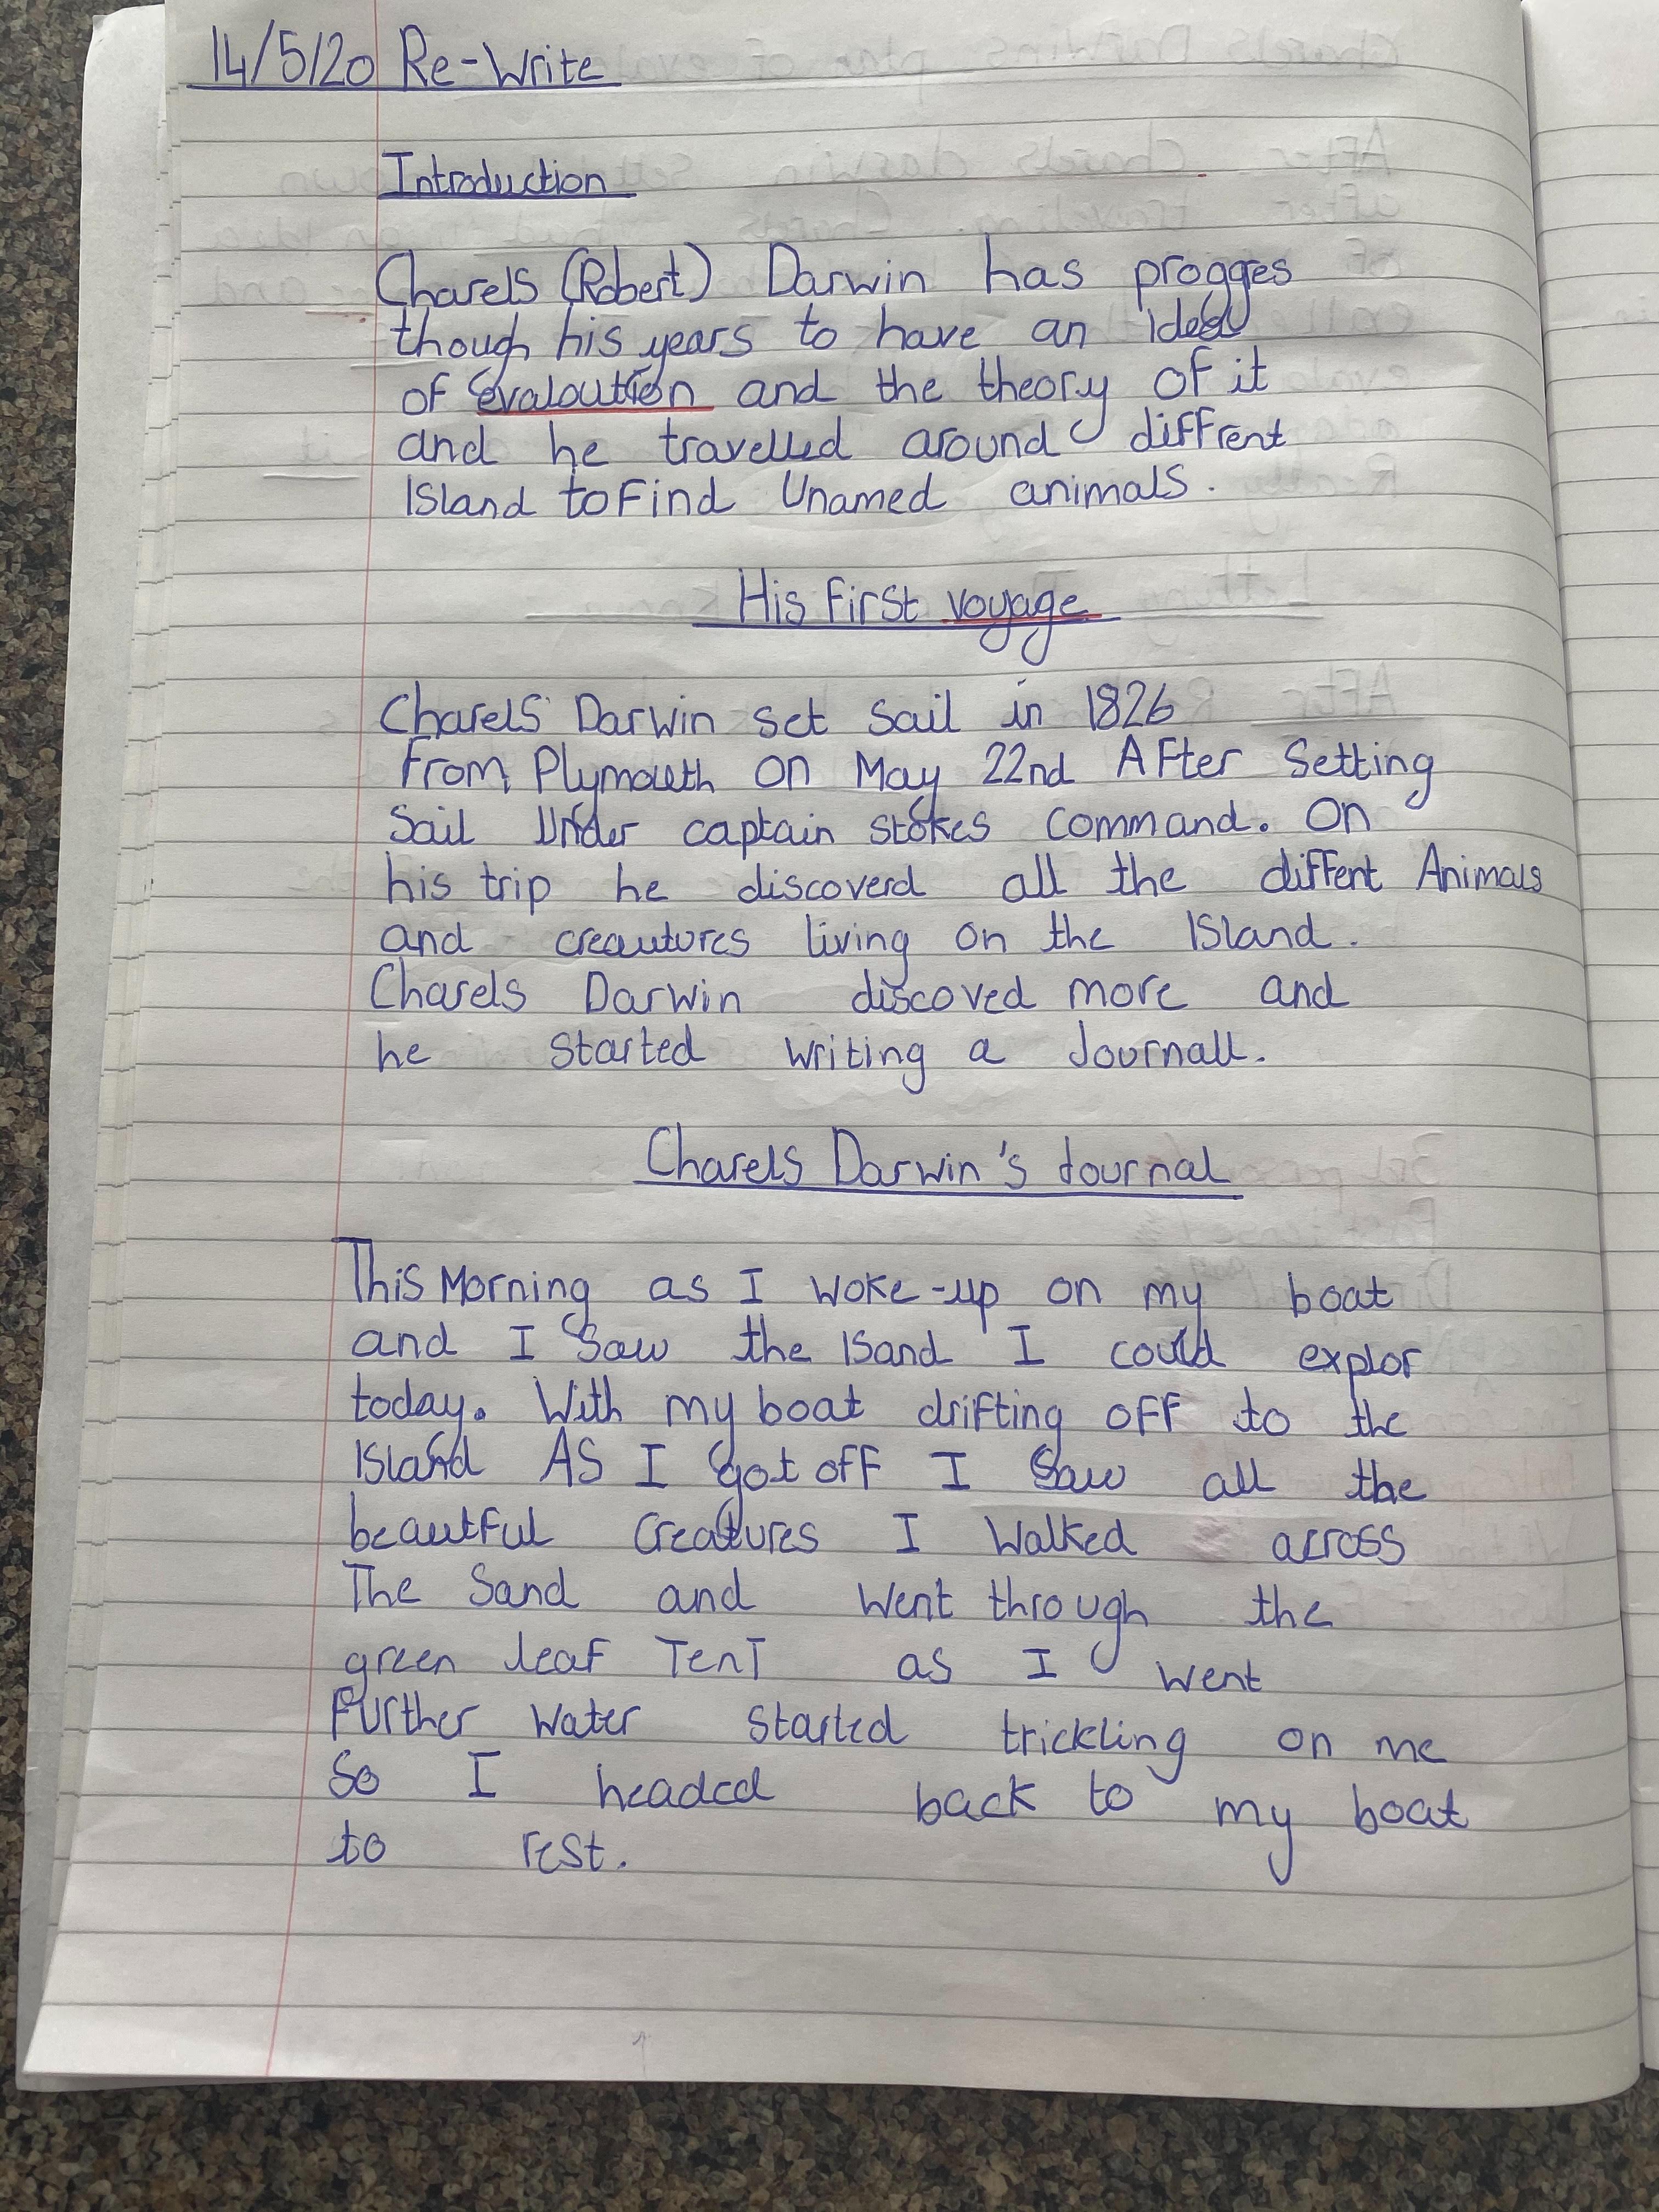 14/5/20 Re-Write
Introduction
Charels (Robert) Darwin has progges
though his years to have an idea
of evaloution and the theory of it
and he travelled around diffrent
Island to find Unamed animals.
His first voyage
Charels Darwin set sail in 1826
from Plymouth on May 22nd After Setting
Sail Under captain stokes command. On
his trip he discoverd all the diffent Animals
and creautures living on the Island.
Charels Darwin discoved more and
he started writing a Journall.
Charels Darwin's Journal
This Morning as I woke-up on my boat
and I saw the Isand I could explor
today. With my boat drifting off to the
Island As I got off I saw all the
beautful Creatures I walked across
The Sand and went through the
green leaf Tent as I went
further water started trickling on me
So I headed back to my boat
to rest.